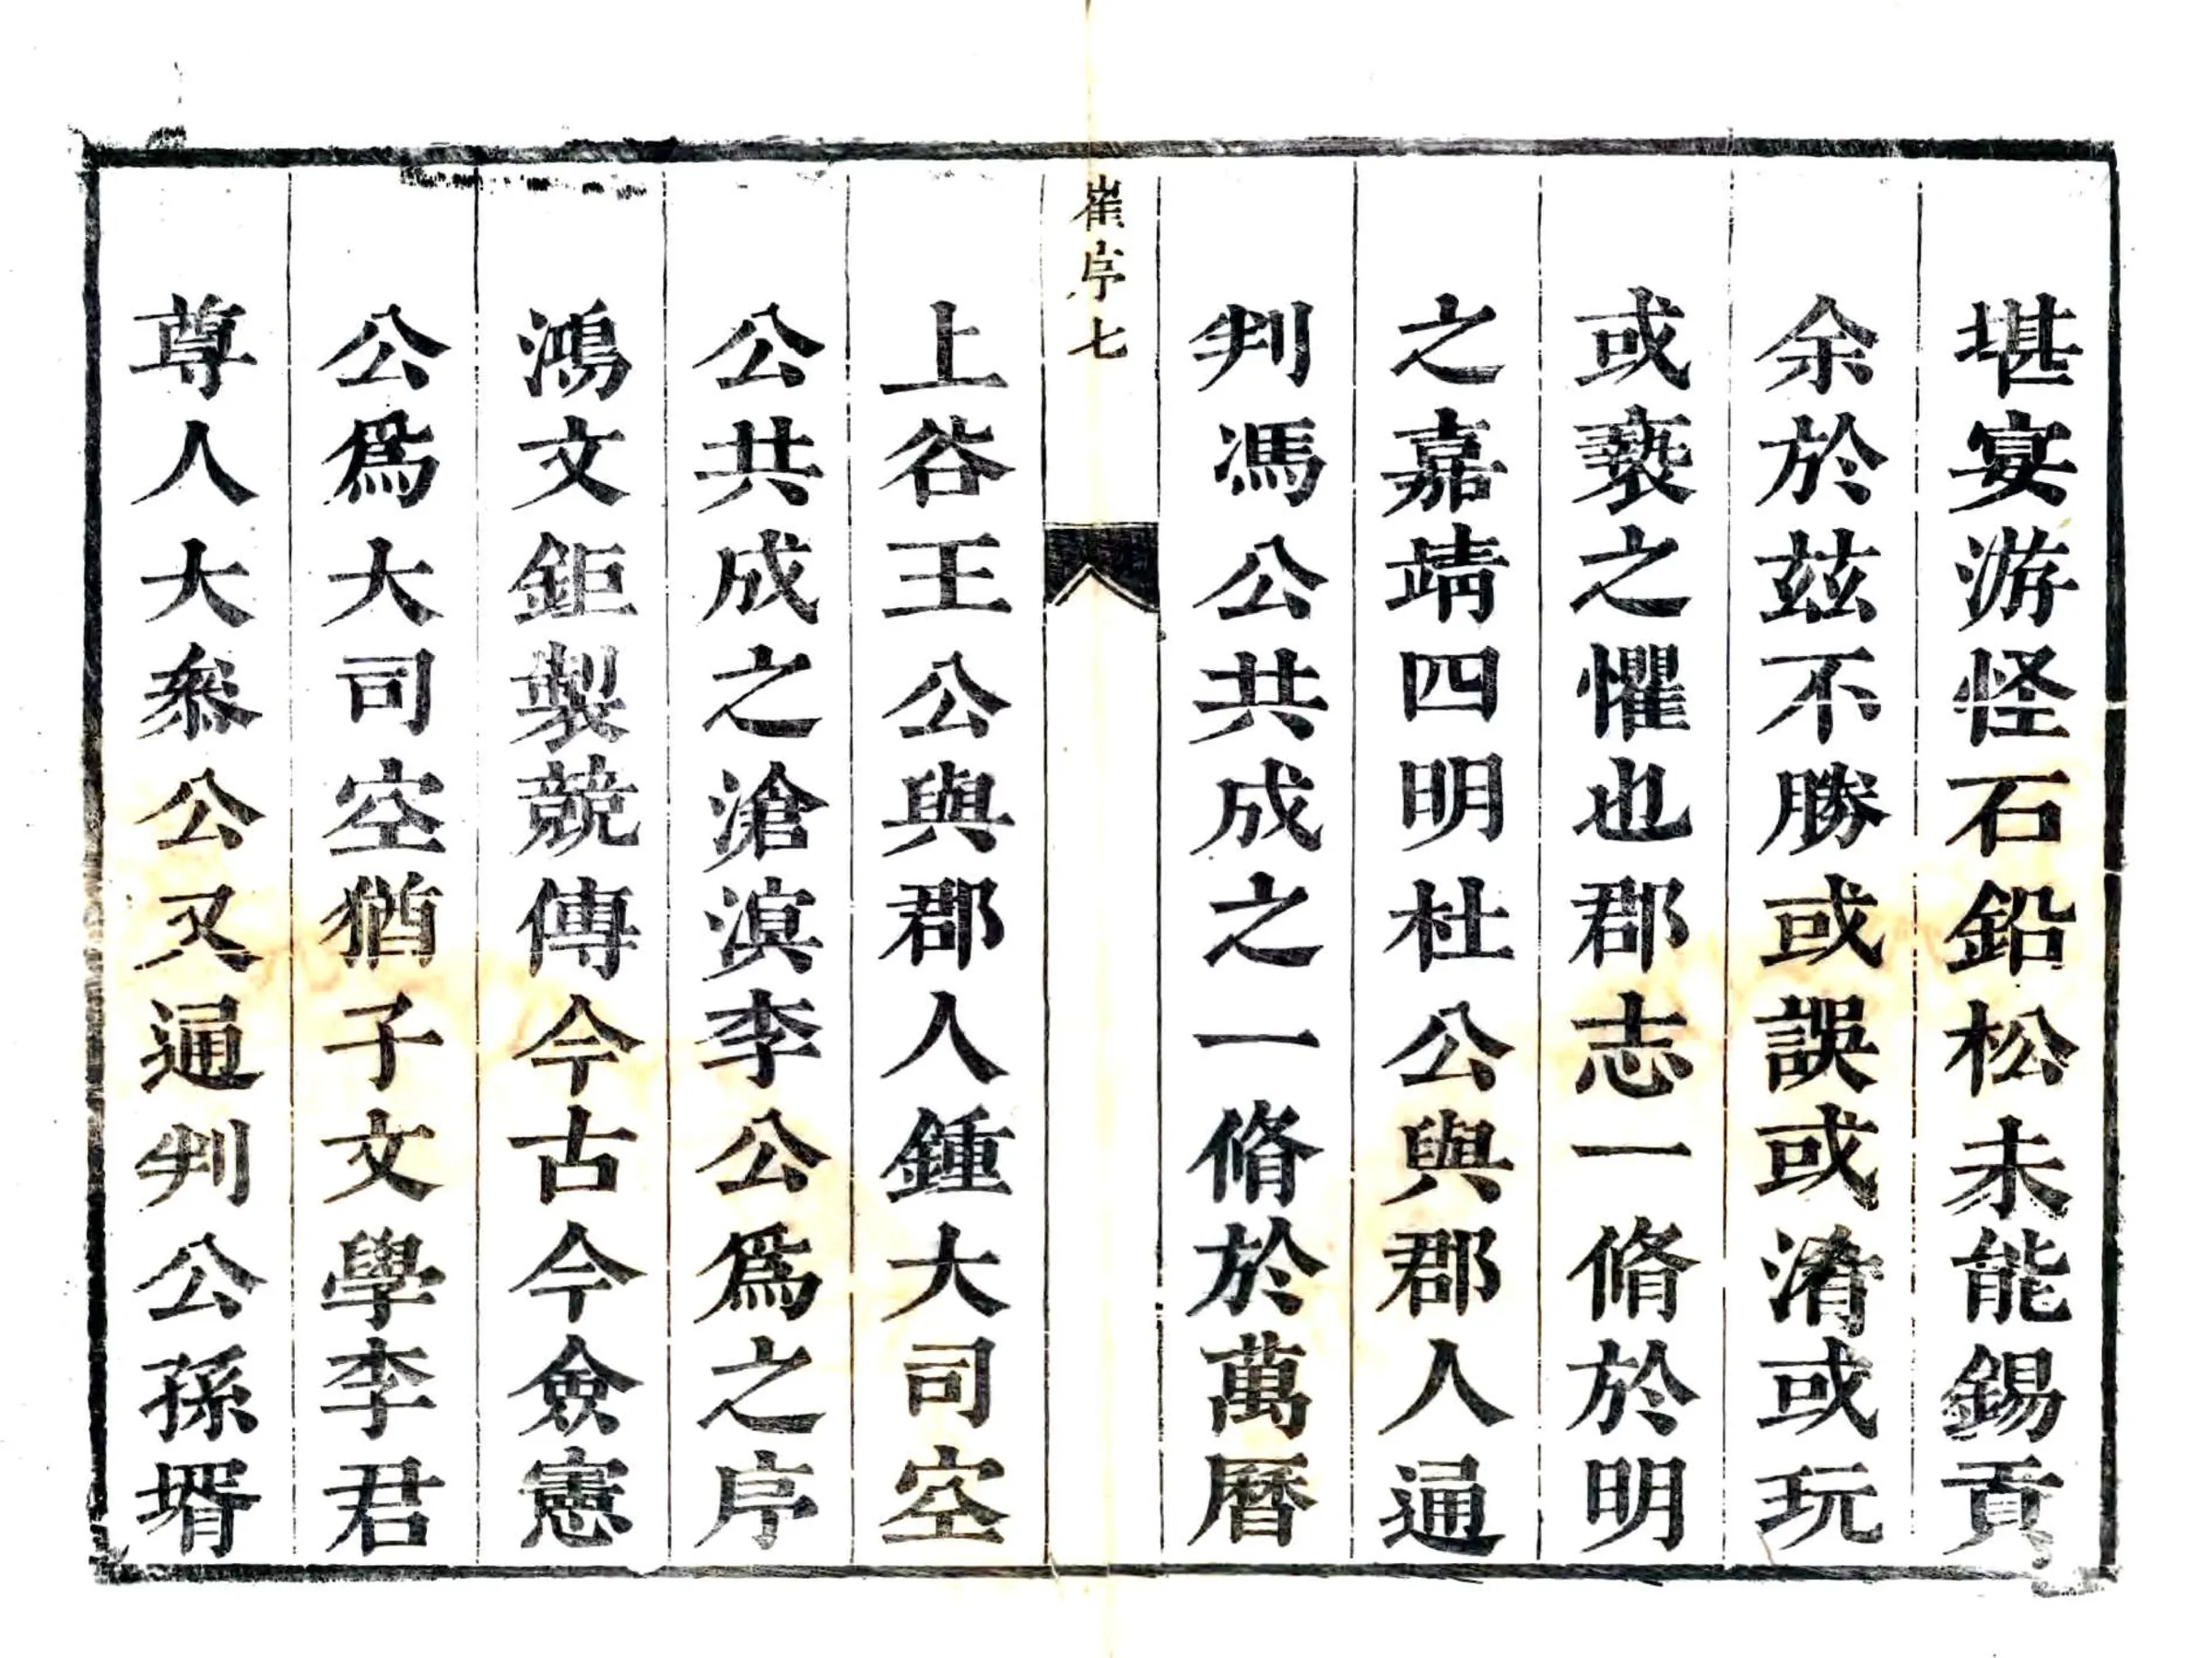 堪宴游怪石鉛松未能錫貢
余於茲不勝或誤或淆或玩
或褻之懼也郡志一脩於明
之嘉靖四明杜公與郡人通
判馮公共成之一脩於萬曆
崔序七
上谷王公與郡人鍾大司空
公共成之滄溟李公爲之序
鴻文鉅製競傳今古今僉憲
公爲大司空猶子文學李君
尊人大叅公又通判公孫壻